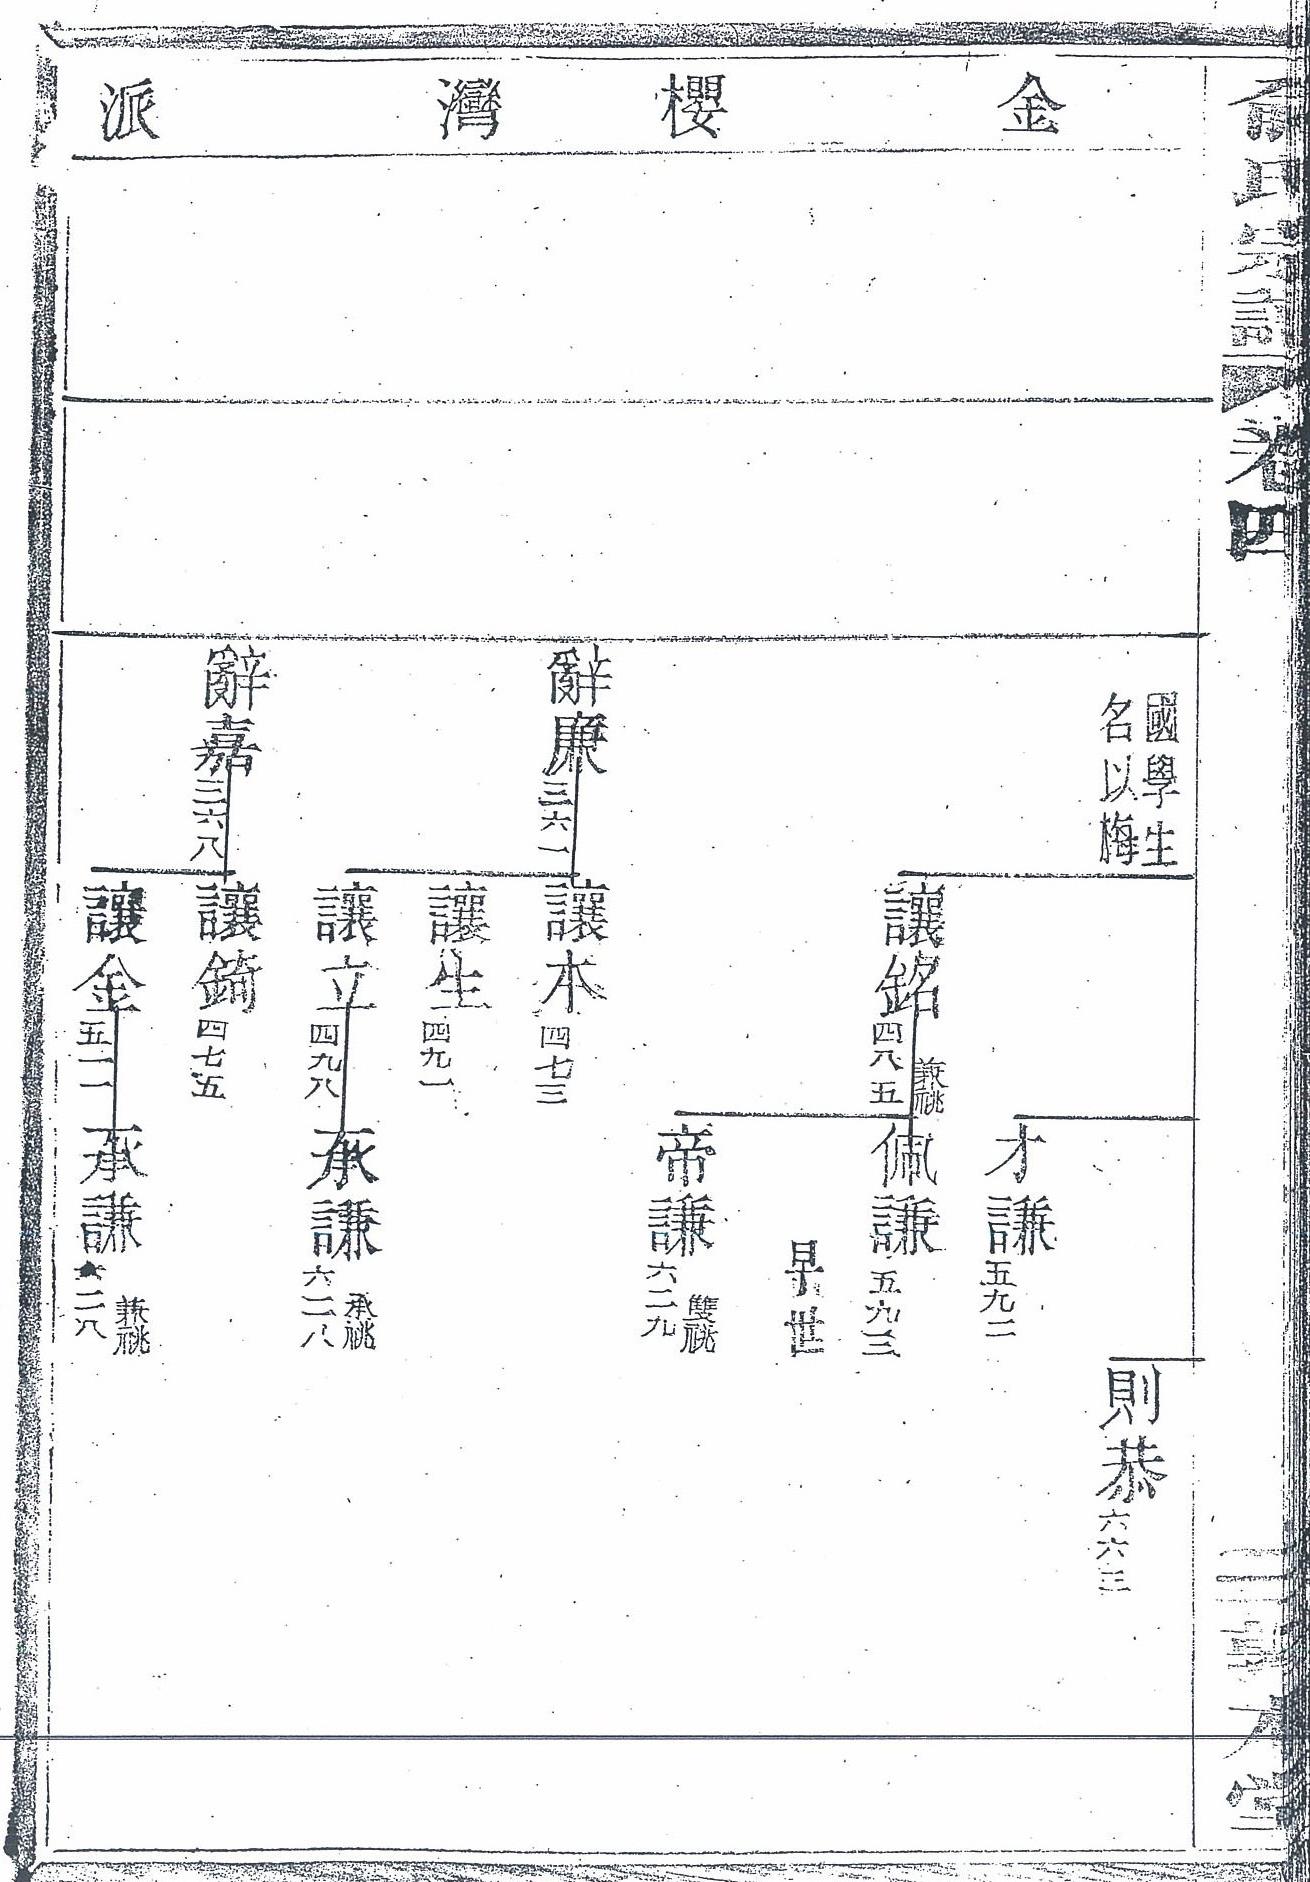 俞氏宗譜
卷四
三
敦本堂
金櫻灣派
國學生
名以梅
則恭六六三
才謙五九二
讓銘四八五
兼祧
佩謙五九三
早世
帝謙六二九
雙祧
辭廉三六一
讓本四七三
讓生四九一
讓立四九八
承謙六二八
承祧
辭嘉三六八
讓錡四七五
讓金五一一
承謙六二八
兼祧